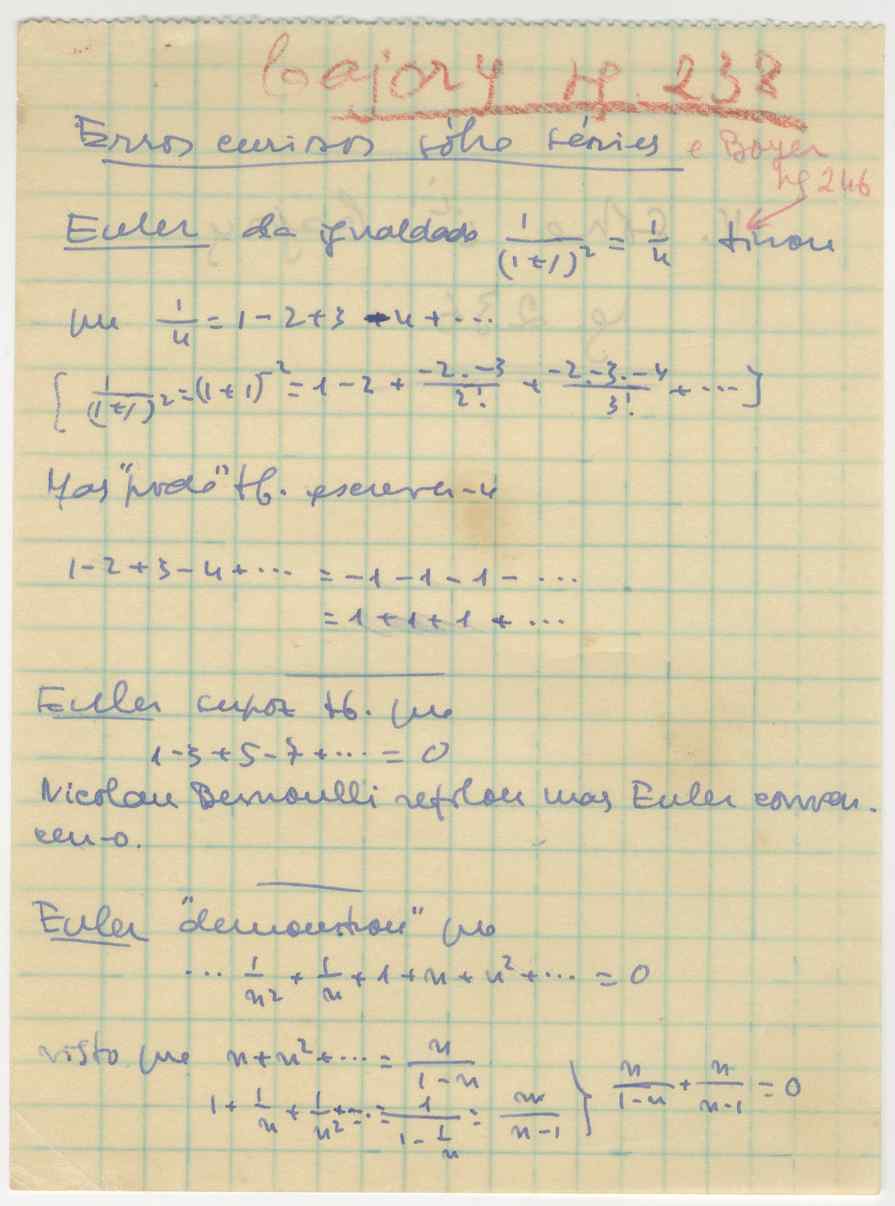 Cajory pg. 238
Erros curiosos sôbre séries e Boyer
pg 246
Euler da igualdade 1/(1+1)² = 1/4 tirou
que 1/4 = 1 - 2 + 3 - 4 + ...
[ 1/(1+1)² = (1+1)⁻² = 1 - 2 + -2.-3/2! + -2.-3.-4/3! + ... ]
Mas "pode" tb. escrever-se
1 - 2 + 3 - 4 + ... = -1 - 1 - 1 - ...
= 1 + 1 + 1 + ...
Euler supoz tb. que
1 - 3 + 5 - 7 + ... = 0
Nicolau Bernoulli refilou mas Euler conven.
ceu-o.
Euler "demonstrou" que
... 1/n² + 1/n + 1 + n + n² + ... = 0
visto que n + n² + ... = n/(1-n)
1 + 1/n + 1/n² + ... = 1/(1 - 1/n) = n/(n-1) } n/(1-n) + n/(n-1) = 0